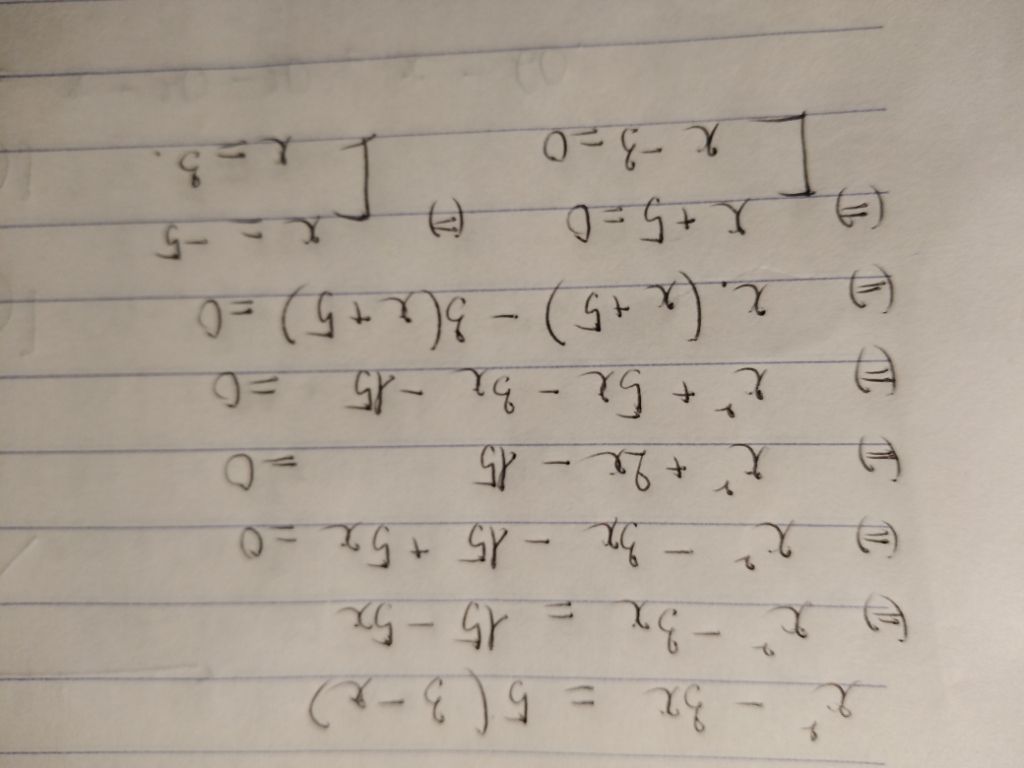 x² - 3x = 5(3-x)
(=) x² - 3x = 15 - 5x
(=) x² - 3x - 15 + 5x = 0
(=) x² + 2x - 15 = 0
(=) x² + 5x - 3x - 15 = 0
(=) x.(x+5) - 3(x+5) = 0
(=) [ x + 5 = 0 (=) [ x = -5
x - 3 = 0 x = 3.